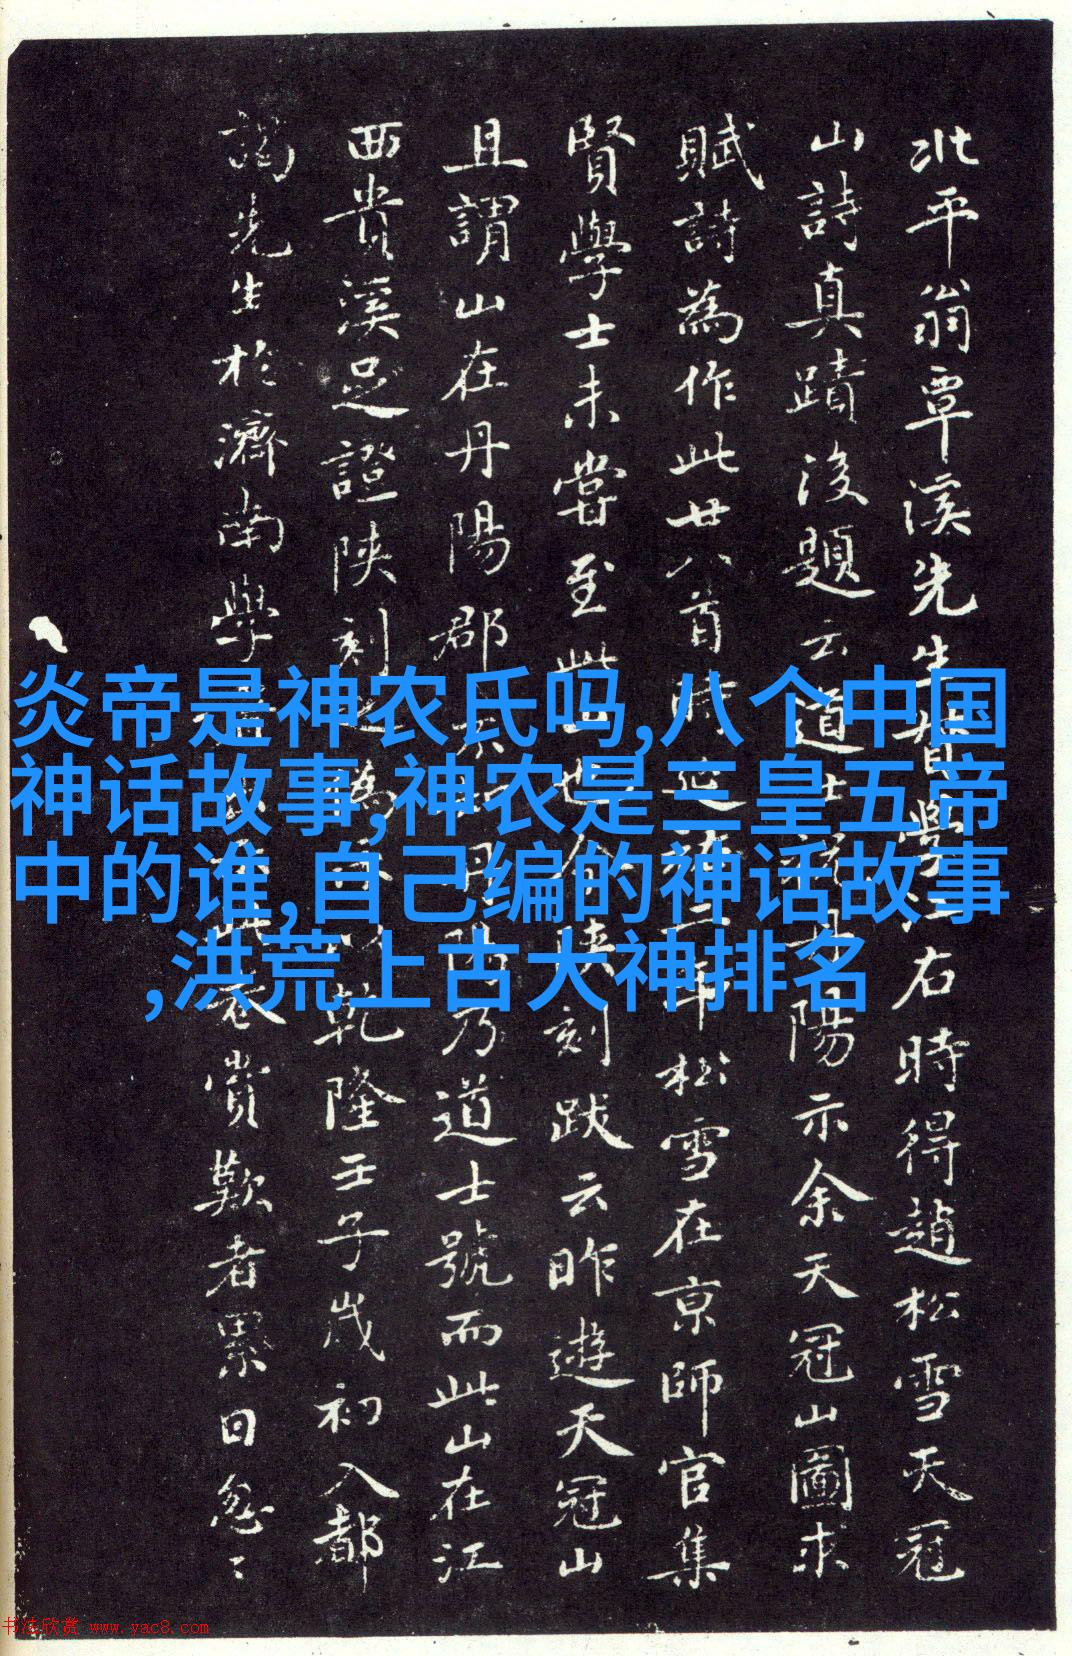 炎帝是神农氏吗,八个中国
神话故事,神农是三皇五帝
中的谁,自己编的神话故事
,洪荒上古大神排名
北平翁覃溪先生督學江右時得趙松雪天冠
山詩真蹟後題云道士陽示余天冠山圖求
賦詩為作此廿八首時延年松雪在京師官集
賢學士未嘗至此山也今陝刻跋云昨遊天冠山
且謂山在丹陽郡不知丹陽乃道士號而此山在江
西貴溪足證陝刻之偽以乾隆壬子歲初入都
謁先生於濟南學賞歎者累日怱〻
书法欣赏 www.yac8.com